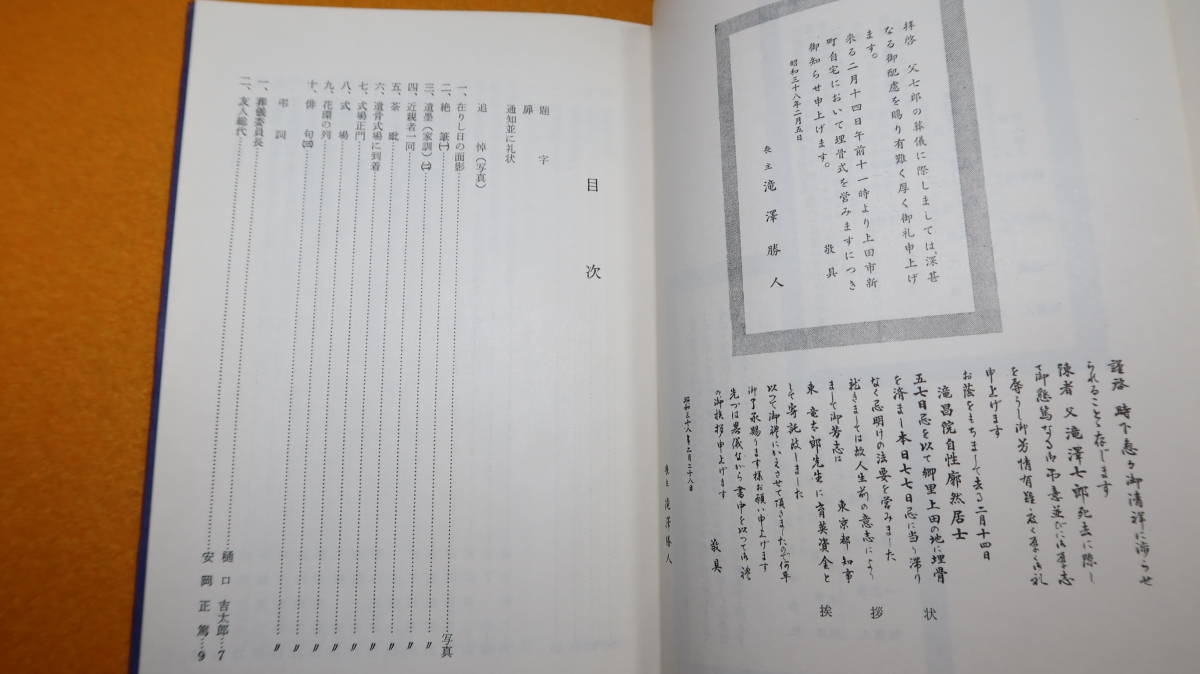 拝啓　父七郎の葬儀に際しましては、深甚
なる御配慮を賜り有難く厚く御礼申上げ
ます。
来る二月十四日午前十一時より上田市新
町自宅において埋骨式を営みますにつき
御知らせ申上げます。
敬具
昭和三十八年二月五日
喪主 滝澤勝人
謹啓　時下愈々御清祥に渉らせ
られることと存じます
陳者　父滝澤七郎死去に際し
ては御懇篤なる御弔意並びに御厚志
を辱うし御芳情有難く厚く御礼
申上げます
お蔭をもちまして去る二月十四日
滝昌院自性廓然居士
五七日忌を以て郷里上田の地に埋骨
を済まし本日七七日忌に当り滞り
なく忌明けの法要を営みました
就きましては故人生前の意志により
まして御芳志は　東京都知事
東　竜太郎先生に育英資金と
して寄託致しました
以つて御礼にかえさせて頂きましたので何卒
御了承賜ります様お願い申上げます
先づは略儀ながら書中を以つて御礼
の御挨拶申上げます
敬具
昭和三十八年二月二十八日
喪主 滝澤勝人
挨拶状
目次
題字
扉
通知並に礼状
追悼（写真）
一、在りし日の面影……写真
二、絶筆㈠……〃
三、遺墨（家訓）㈡……〃
四、近親者一同……〃
五、荼毗……〃
六、遺骨式場に到着……〃
七、式場正門……〃
八、式場……〃
九、花圜の列……〃
十、俳句㈣……〃
弔詞
一、葬儀委員長……樋口吉太郎…7
二、友人総代……安岡正篤…9